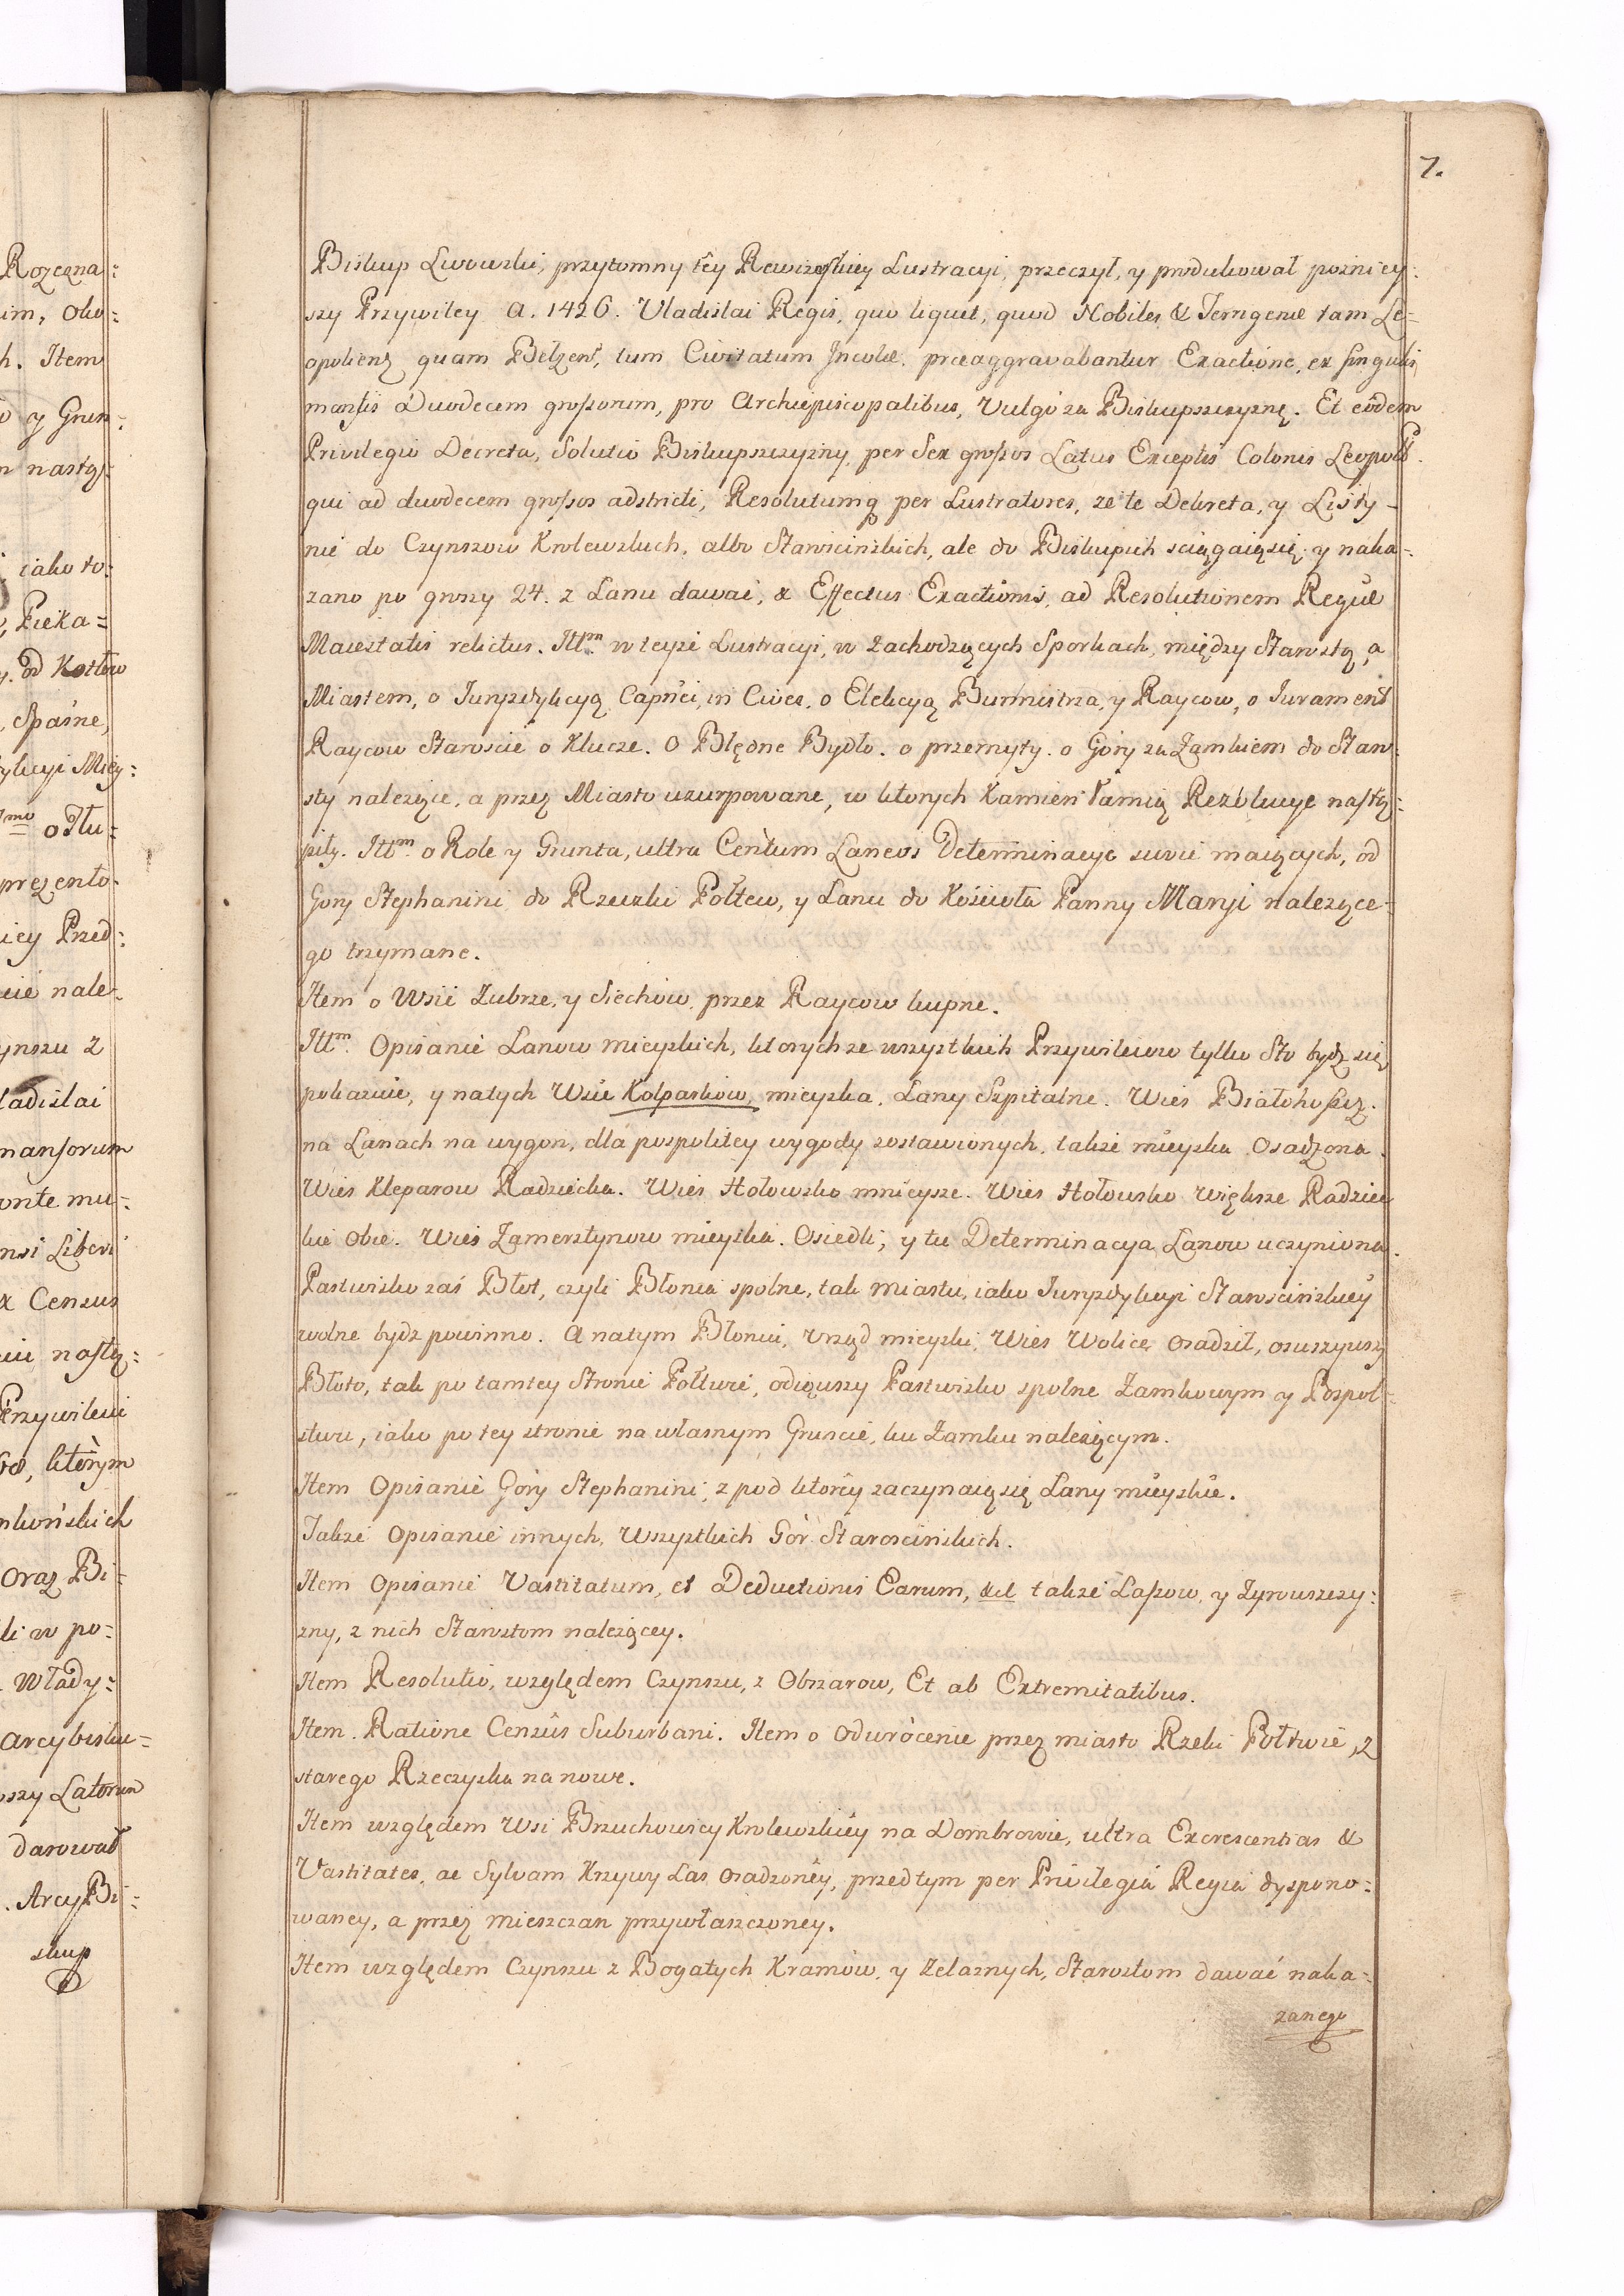 7.
Biskup Lwowski, przytomny tey Rewizorskiey Lustracyi, przeczył, y produkował pozniey=
szy Przywiley A. 1426. Vladislai Regis, quo liquet, quod Nobiles & Terrigenæ tam Le=
opoliens quam Belzens, tum Civitatum Incolæ, præaggravabantur Exactione, ex singulis
mansis Duodecem grossorum, pro Archiepiscopalibus, Vulgo za Biskupszczyznę. Et eodem
Privilegio Decreta, Solutio Biskupszczyzny, per Sex grossos Latus Exceptis Colonis Leopold.
qui ad duodecem grossos adstricti, Resolutumq per Lustratores, ze te Dekreta, y Listy
nie do Czynszow Krolewskich, albo Staroscinskich, ale do Biskupich sciągaią się, y naka=
zano po groszy 24. z Lanu dawać, & Effectus Exactionis, ad Resolutionem Regiæ
Maiestatis relictus. Ittm w teyże Lustracyi, w zachodzących Sporkach, między Starostą, a
Miastem, o Juryzdykcyą Capnei, in Cives, o Elekcyą Burmistrza, y Raycow, o Jurament
Raycow Staroscie o Klucze. O Błędne Bydło. o przemyty. o Góry za Zamkiem do Staro=
sty należące, a przez Miasto uzurpowane, w ktorych Kamień łamią Rezolucye nastą=
piły. Ittm o Role y Grunta, ultra Centum Laneos Determinacyę swoie maiących, od
Gory Stephanini do Rzeczki Połtew, y Lanu do Kościoła Panny Maryi należące=
go trzymane.
Item o Wsie Zubrze, y Siechów, przez Raycow kupne.
Ittm. Opisanie Lanow mieyskich, ktorych ze wszystkich Przywileiow tylko Sto bydź się
pokazuie, y na tych Wsie Kolparkow, mieyska, Lany Szpitalne. Wieś Białohoszcz.
na Lanach na wygon, dla pospolitey wygody zostawionych, także mieyska Osadzona.
Wieś Kleparow Radziecka. Wieś Hołowsko mnieysze. Wieś Hołowsko większe Radziec
kie obie. Wieś Zamerstynow mieyska. Osiedli, y tu Determinacya Lanow uczyniona.
Pastwisko zaś Błot, czyli Błonia spolne, tak miastu, iako Juryzdykcyi Starościńskiey
wolne bydz powinno. A na tym Błoniu, Urząd mieyski, Wieś Wolicę osadził, osuszywszy
Błoto, tak po tamtey Stronie Połtwi, odiąwszy Pastwisko spolne Zamkowym y Pospol=
stwu, iako po tey stronie na własnym Gruncie, ku Zamku należącym.
Item Opisanie Góry Stephanini, z pod ktorey zaczynaią się Lany mieyskie.
Także Opisanie innych, Wszystkich Gór Staroscinskich.
Item Opisanie Vastitatum, et Deductionis Earum, także Lasow, y Zyrowszczy=
zny, z nich Starostom należącey.
Item Resolutio, względem Czynszu, z Obszarow, Et ab Extremitatibus.
Item. Ratione Census Suburbani. Item o odwrócenie przez miasto Rzeki Połtwie, z
starego Rzeczyska na nowe.
Item względem Wsi Brzuchowicy Krolewskiey na Dombrowie, ultra Excrescentias &
Vastitates, ac Sylvam Krzywy Las osadzoney, przedtym per Privilegia Regia dyspono=
waney, a przez mieszczan przywłaszczoney.
Item względem Czynszu z Bogatych Kramów, y Zelaznych, Starostom dawać naka=
zanego